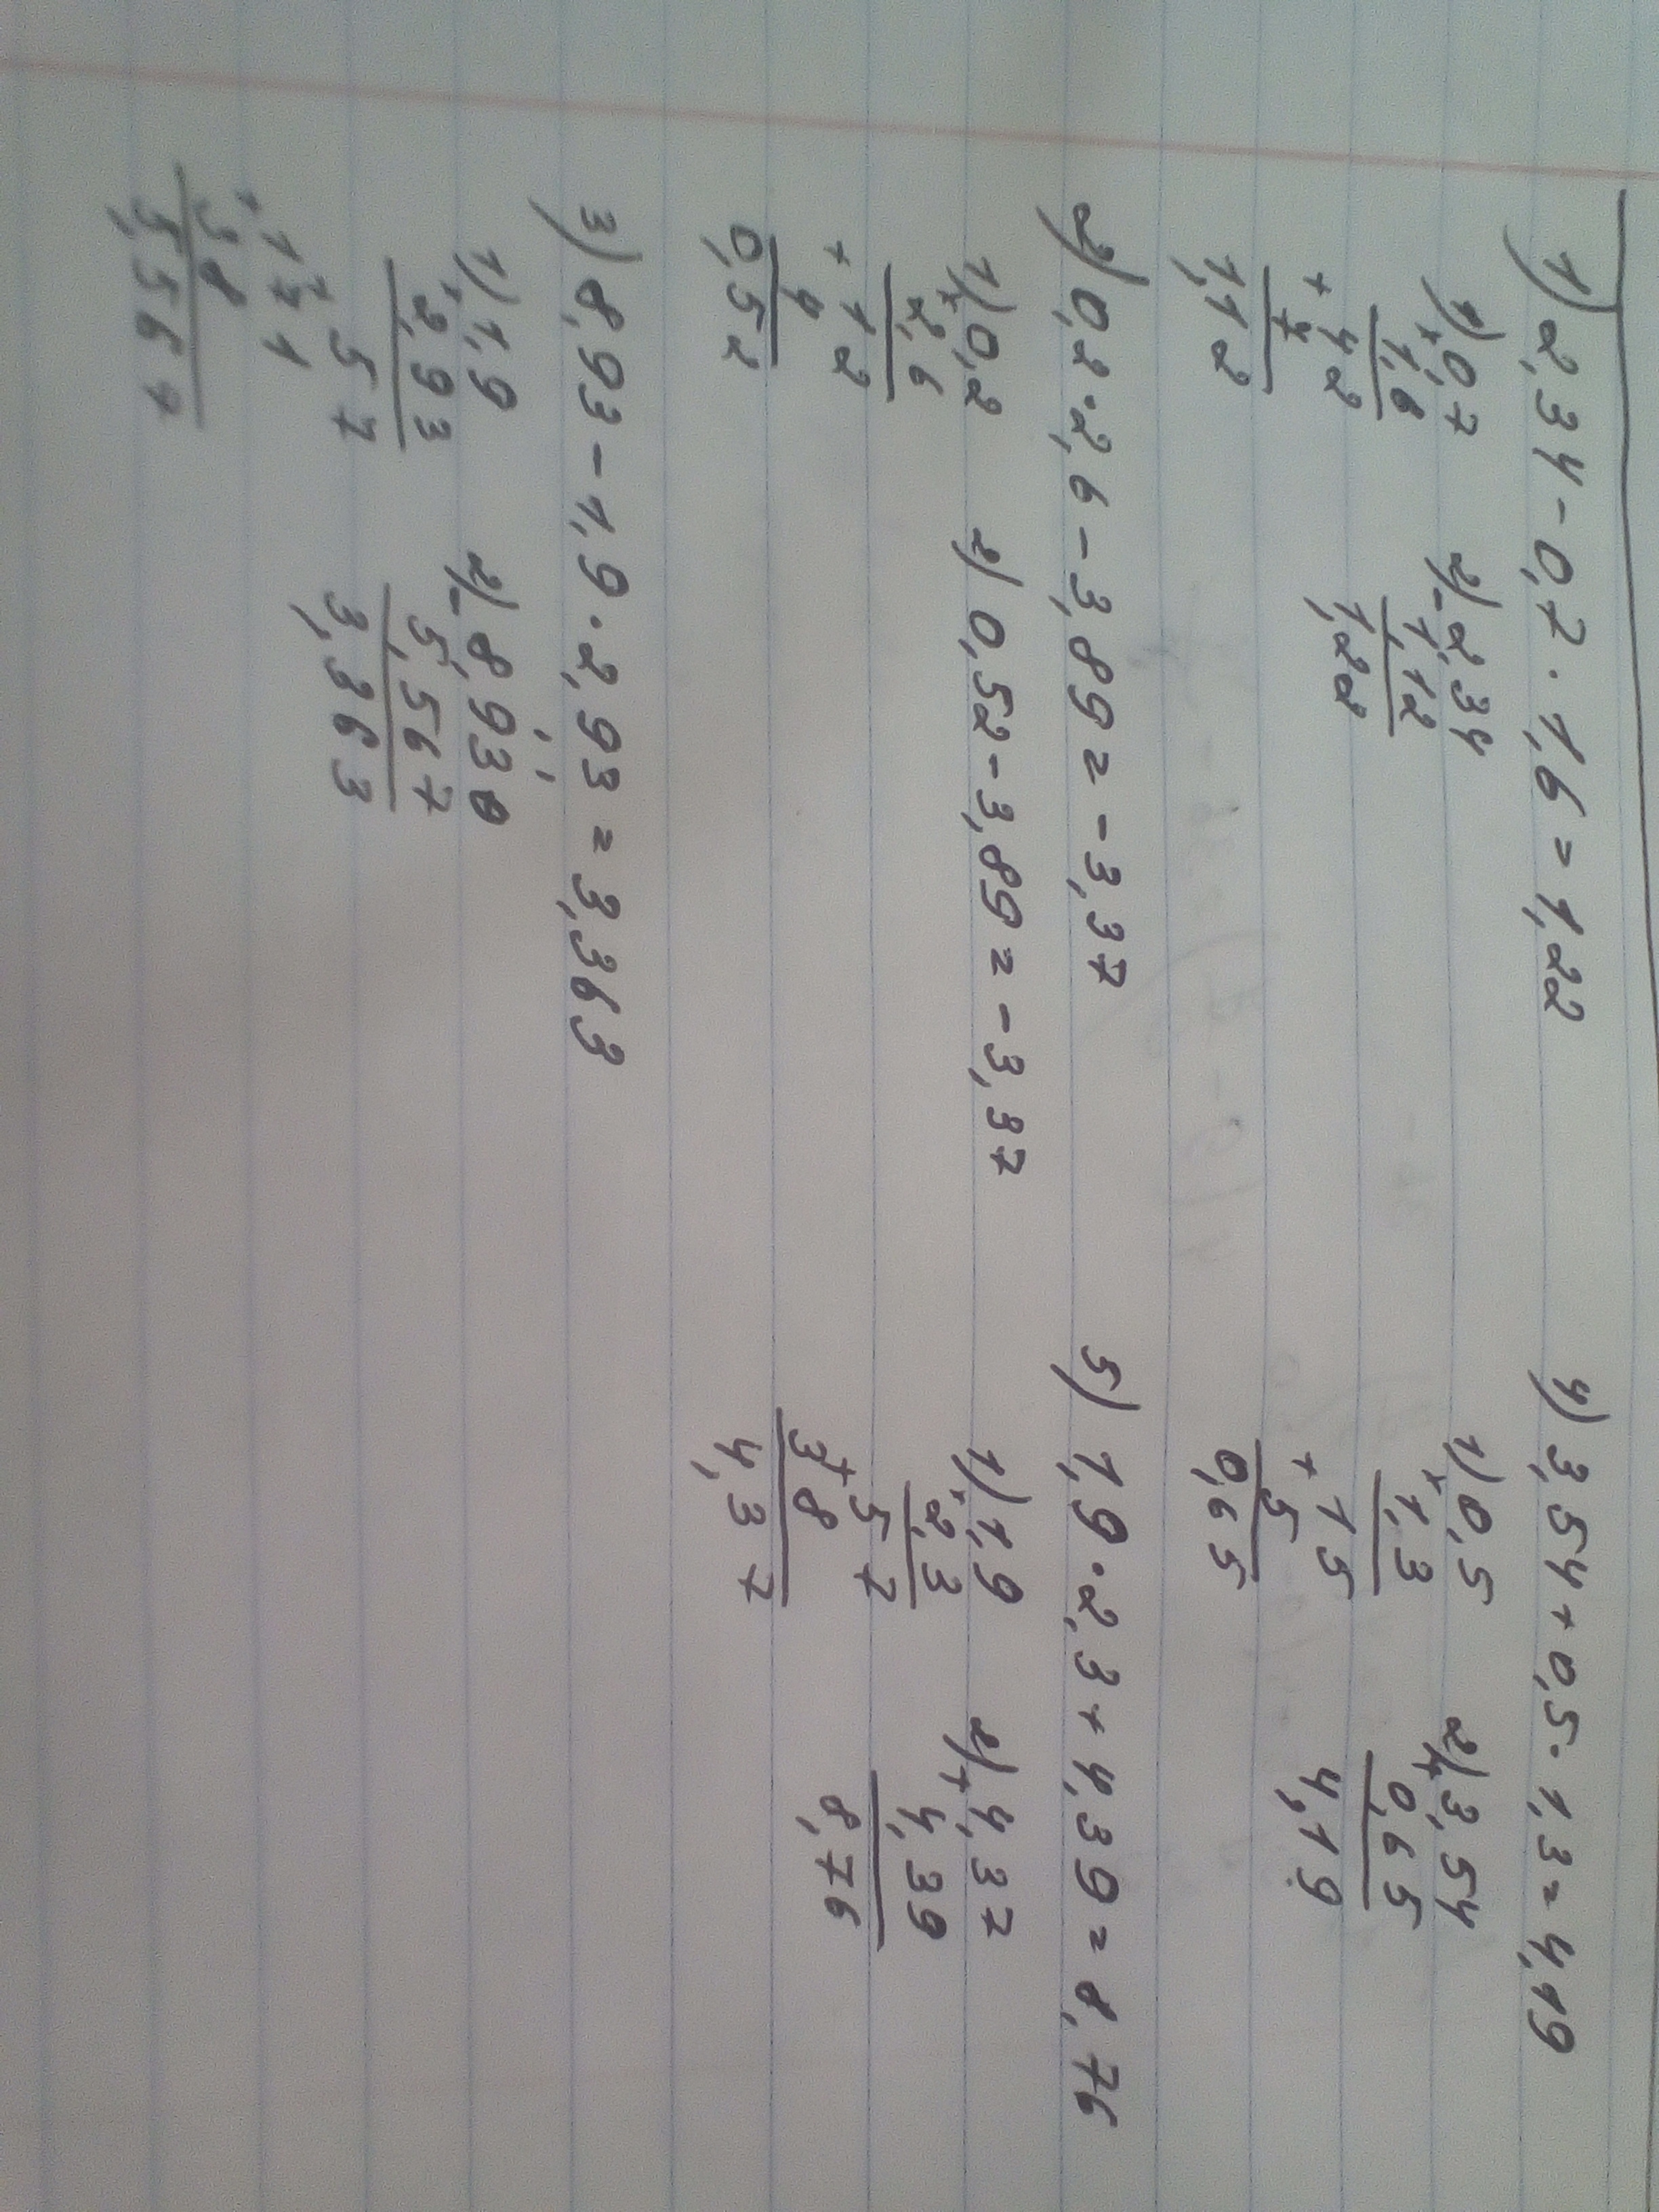 1) 2,34 - 0,7 · 1,6 = 1,22
1) × 0,7
1,6
+ 42
7
1,12
2) - 2,34
1,12
1,22
2) 0,2 · 2,6 - 3,89 = -3,37
1) × 0,2
2,6
+ 12
4
0,52
2) 0,52 - 3,89 = -3,37
3) 8,93 - 1,9 · 2,93 = 3,363
1) × 1,9
2,93
57
+ 171
38
5,567
2) - 8,930
5,567
3,363
4) 3,54 + 0,5 · 1,3 = 4,19
1) × 0,5
1,3
+ 15
5
0,65
2) + 3,54
0,65
4,19
5) 1,9 · 2,3 + 4,39 = 8,76
1) × 1,9
2,3
+ 57
38
4,37
2) + 4,37
4,39
8,76